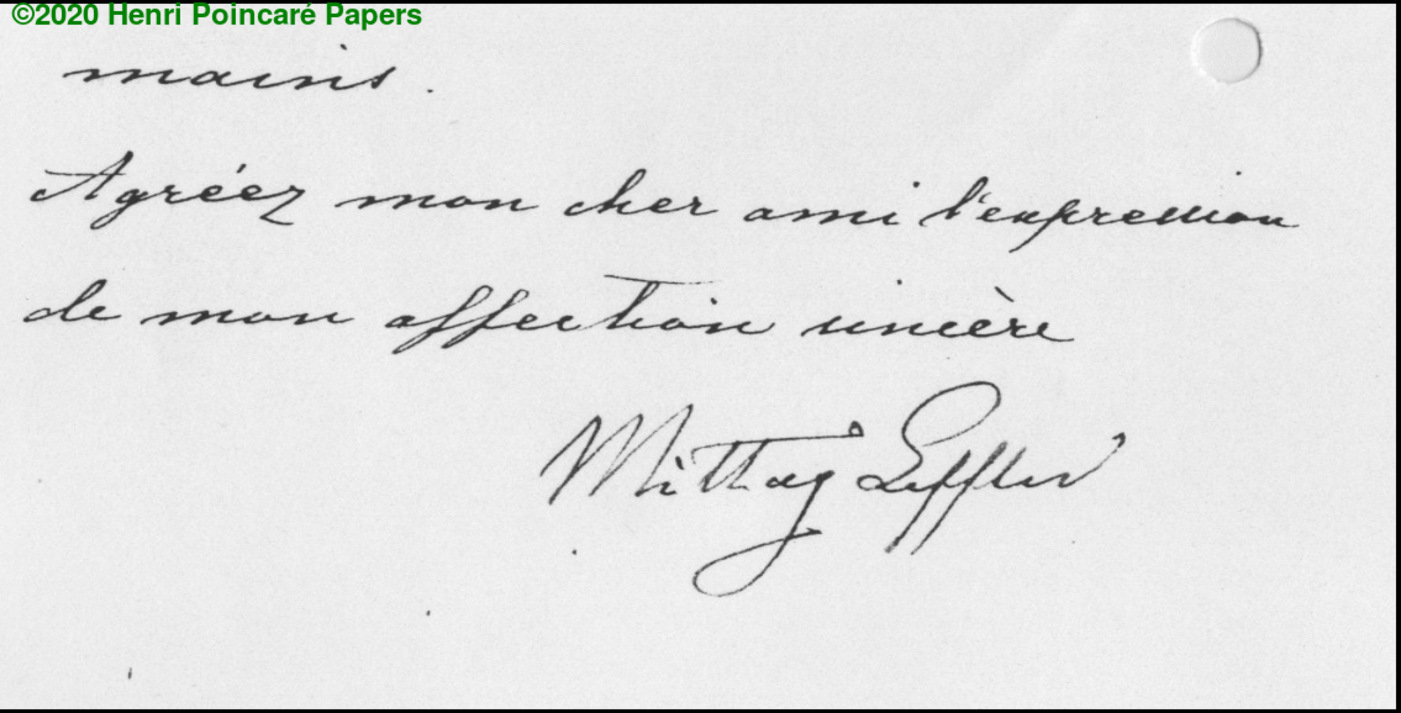 ©2020 Henri Poincaré Papers
mains.
Agréez mon cher ami l'expression
de mon affection sincère
Mittag Leffler